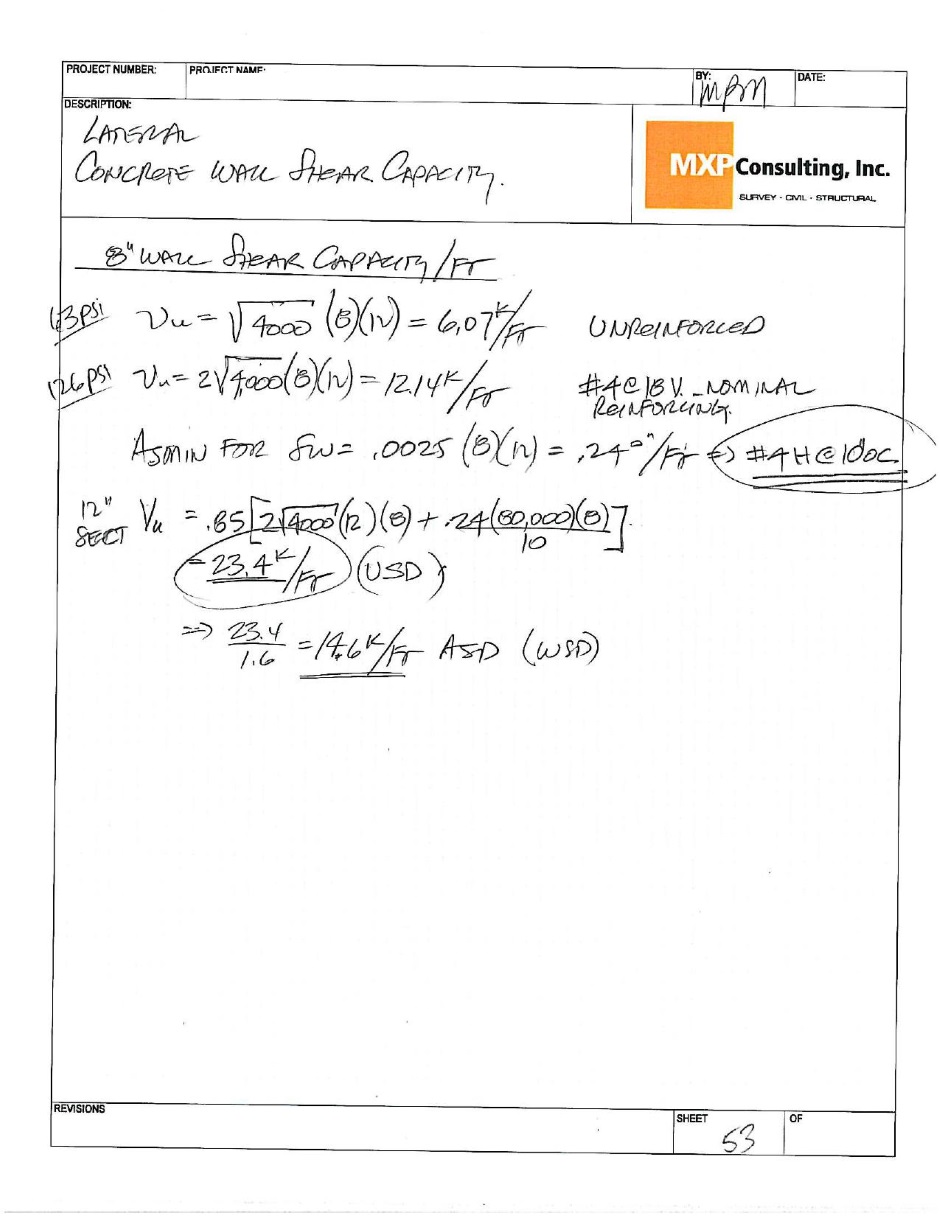 PROJECT NUMBER: PROJECT NAME: BY: MBM DATE:
DESCRIPTION:
LATERAL
CONCRETE WALL SHEAR CAPACITY.
MXP Consulting, Inc.
SURVEY - CIVIL - STRUCTURAL
8" WALL SHEAR CAPACITY/FT
63psi Vu = √4000 (8)(12) = 6.07 K/FT UNREINFORCED
126psi Vu = 2√4,000 (8)(12) = 12.14 K/FT #4@18 V. NOMINAL
REINFORCING.
ASMIN FOR SW = .0025 (8)(12) = .24 □"/FT => #4 H @ 10 OC
12" SECT Vu = .85[2√4000 (12)(8) + .24(60,000)(8)/10]
= 23.4 K/FT (USD)
=> 23.4/1.6 = 14.6 K/FT ASD (WSD)
REVISIONS SHEET 53 OF